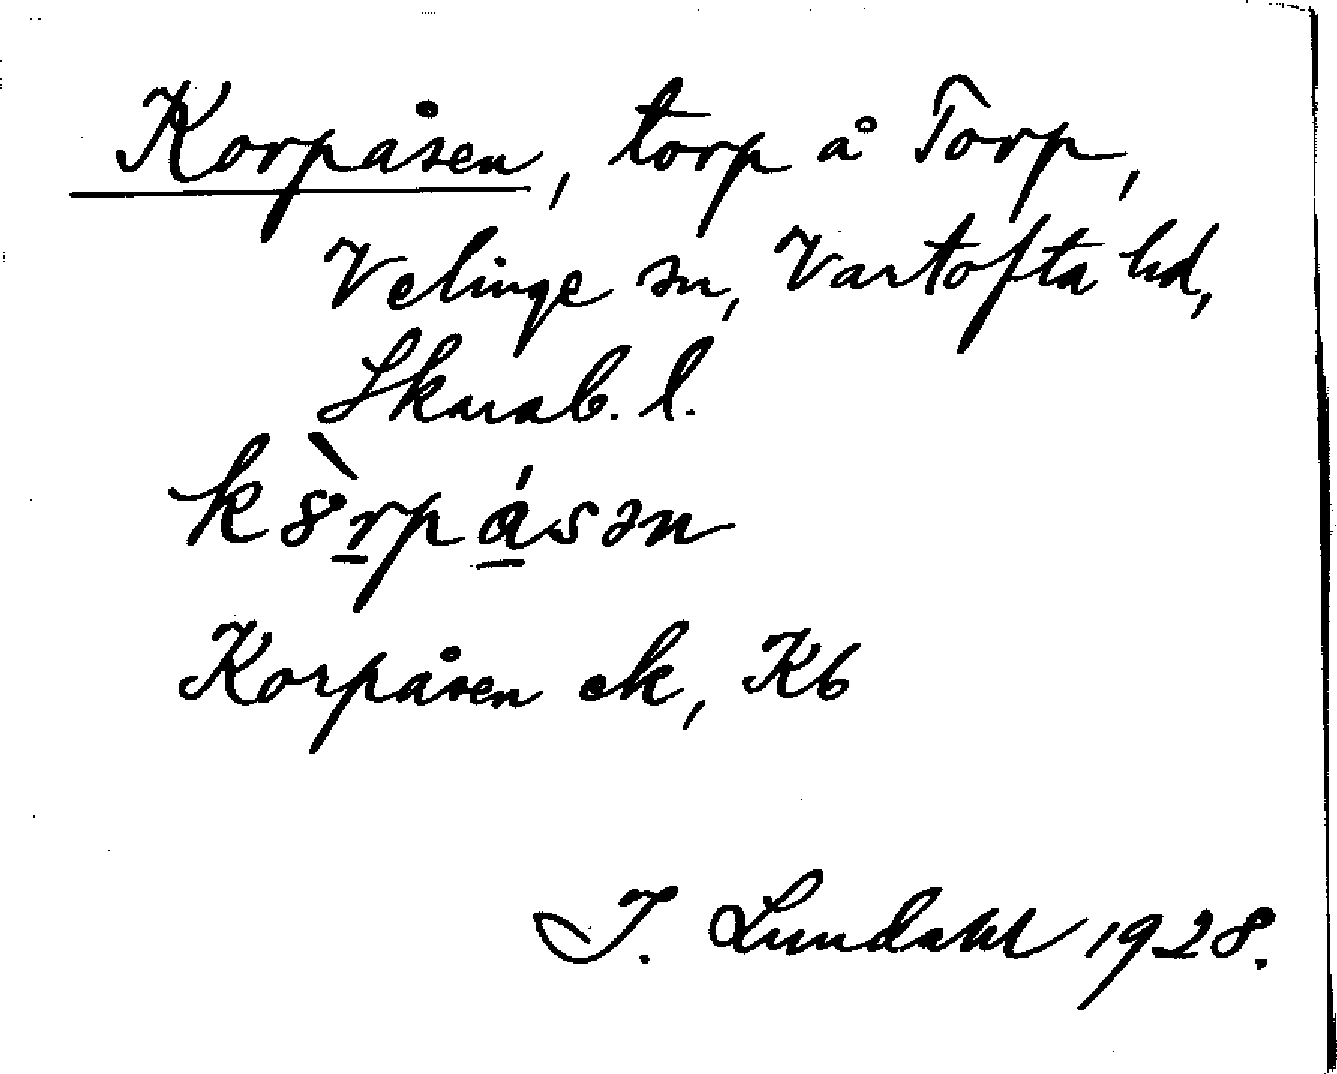 Korpåsen, torp å Torp,
Velinge sn, Vartofta hd,
Skarab. l.
kȣ̀r̠pá̠sən
Korpåsen ek, Kb
I. Lundahl 1928.